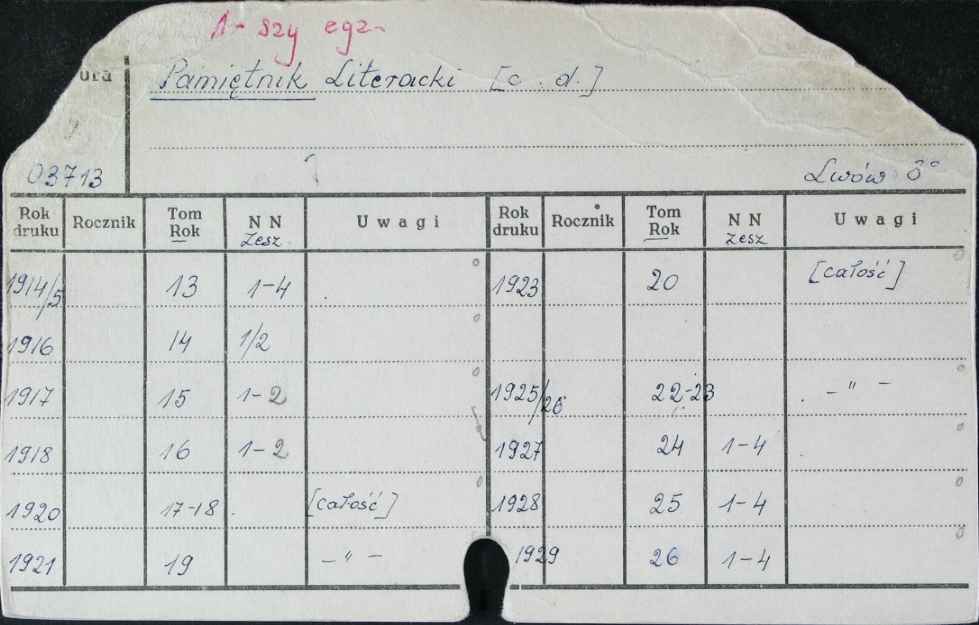 1-szy egz-
ura
Pamiętnik Literacki [c. d.]
03713
Lwów 8°
Rok druku Rocznik Tom Rok N N Zesz. Uwagi Rok druku Rocznik Tom Rok N N Zesz Uwagi
1914/5 13 1-4 1923 20 [całość]
1916 14 1/2
1917 15 1-2 1925/26 22-23 - " -
1918 16 1-2 1927 24 1-4
1920 17-18 [całość] 1928 25 1-4
1921 19 - " - 1929 26 1-4